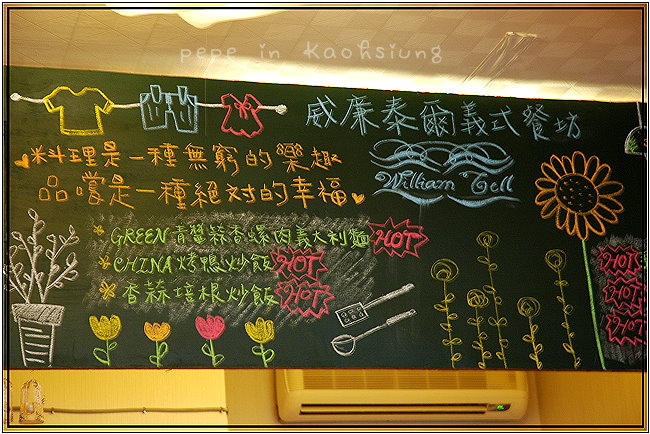 pepe in Kaohsiung
威廉泰爾義式餐坊
William Tell
料理是一種無窮的樂趣
品嚐是一種絕對的幸福
GREEN青醬蒜香螺肉義大利麵 HOT
CHINA烤鴨炒飯 HOT
香蒜培根炒飯 HOT
HOT
HOT
HOT